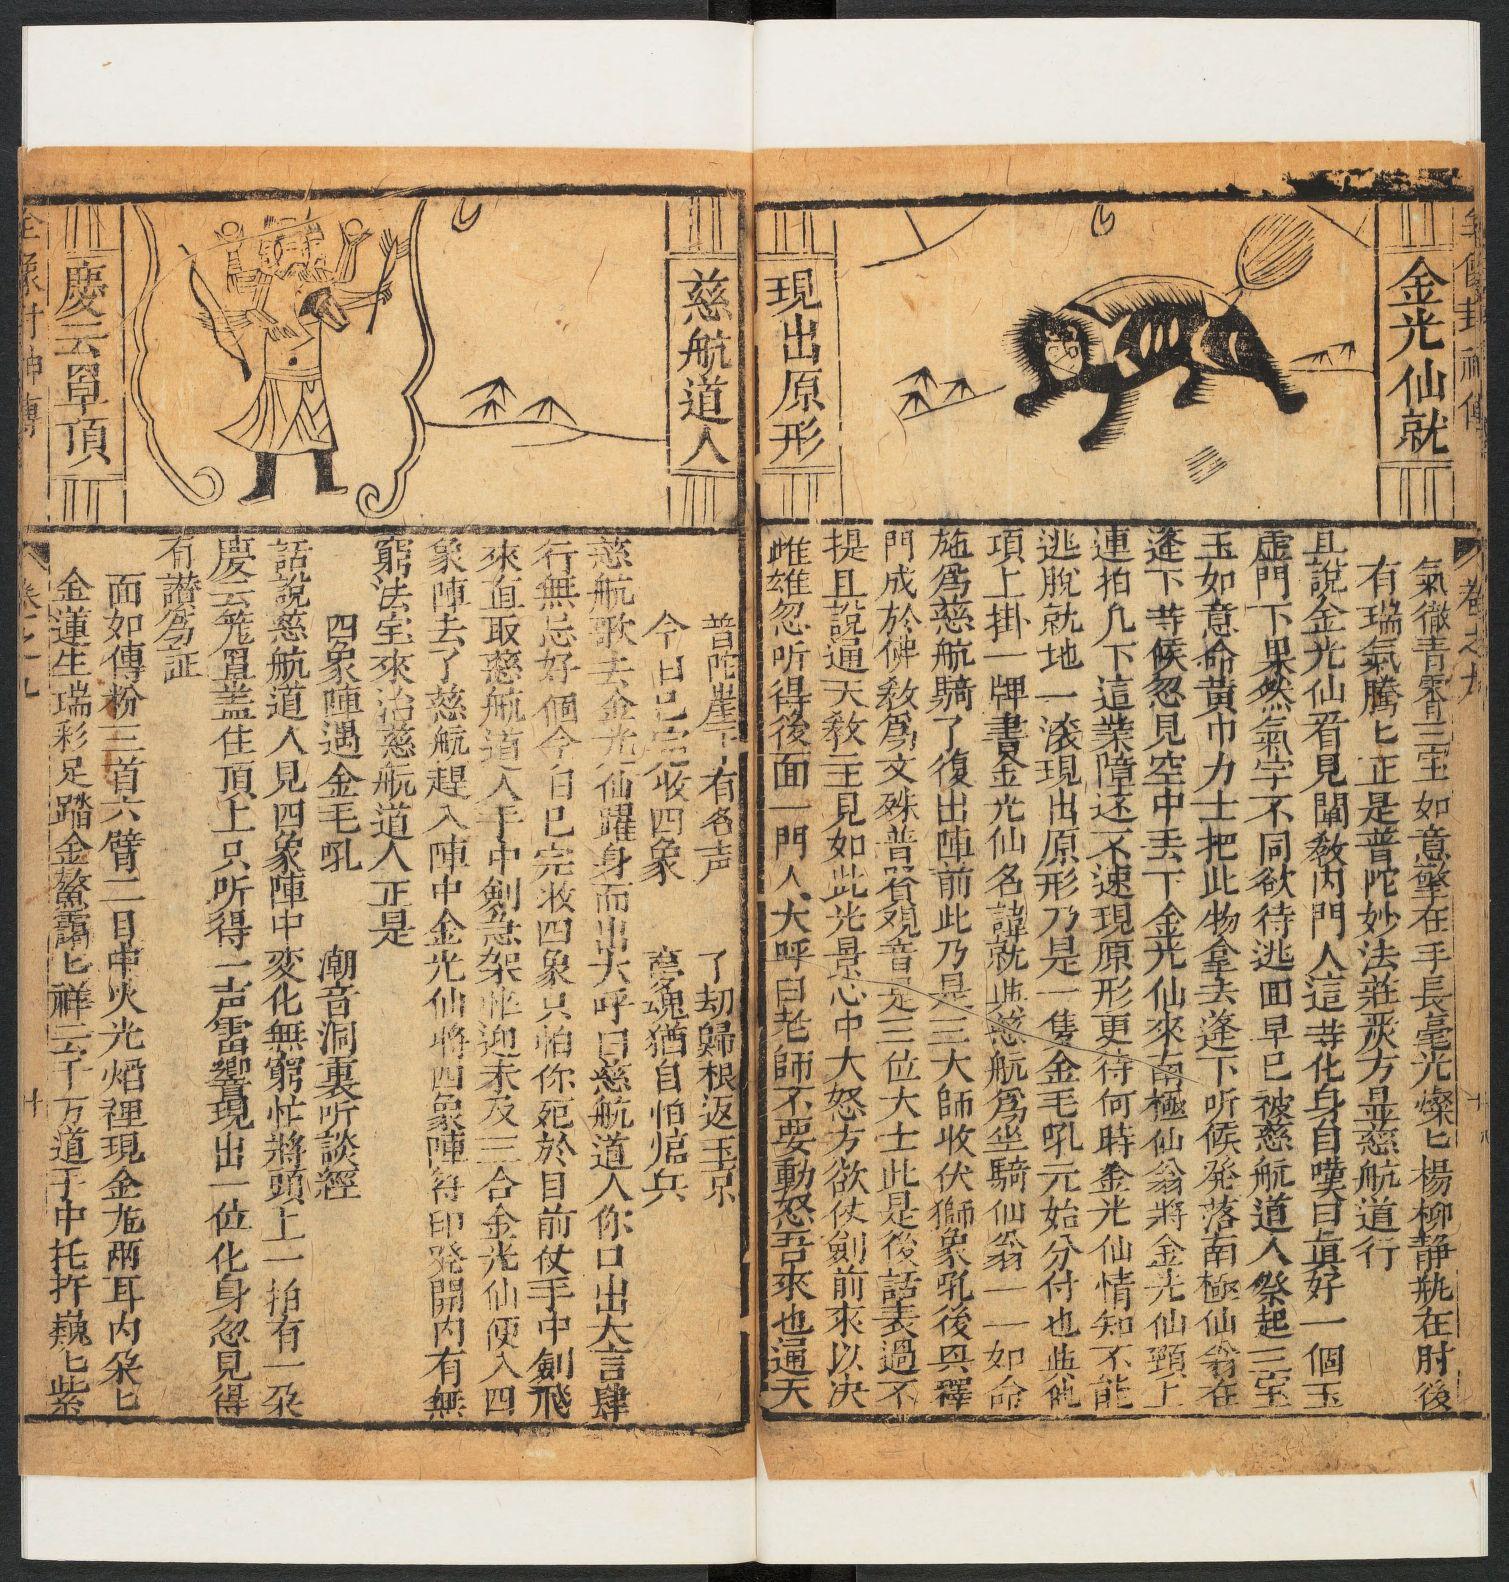 金光仙就
現出原形
氣徹青霄三宝如意擎在手長毫光燦匕楊柳静瓶在肘後
有瑞氣騰匕正是普陀妙法莊嚴方显慈航道行
且說金光仙看見闡教内門人這等化身自嘆曰眞好一個玉
虛門下果然氣宇不同欲待逃回早已被慈航道人祭起三宝
玉如意命黄巾力士把此物拿去蓬下听候発落南極仙翁在
蓬下等候忽見空中丢下金光仙來南極仙翁將金光仙頸上
連拍几下這業障还不速現原形更待何時金光仙情知不能
逃脫就地一滚現出原形乃是一隻金毛吼元始分付也與他
項上掛一牌書金光仙名諱就與慈航爲坐騎仙翁一一如命
施爲慈航騎了復出陣前此乃是三大師收伏獅象吼後與釋
門成於佛教爲文殊普賢観音是三位大士此是後話表過不
提且說通天教主見如此光景心中大怒方欲仗剑前來以决
雌雄忽听得後面一門人大呼曰老師不要動怒吾來也通天
慈航道人
慶云罩頂
普陀崖下有名声　了劫歸根返玉京
今日已完收四象　夢魂猶自怕熕兵
慈航歌去金光仙躍身而出大呼曰慈航道人你口出大言肆
行無忌好個今日已完收四象只怕你死於目前仗手中劍飛
來直取慈航道人手中劍急架忙迎未及三合金光仙便入四
象陣去了慈航趕入陣中金光仙將四象陣符印発開内有無
窮法宝來治慈航道人正是
四象陣遇金毛吼　潮音洞裏听談經
話說慈航道人見四象陣中变化無窮忙將頭上一拍有一朶
慶云笼罩盖住頂上只听得一声雷響現出一位化身忽見得
有讃爲証
面如傅粉三首六臂二目中火光焰裡現金龙兩耳内朶匕
金蓮生瑞彩足踏金鰲靄匕祥云千万道手中托杵巍匕紫